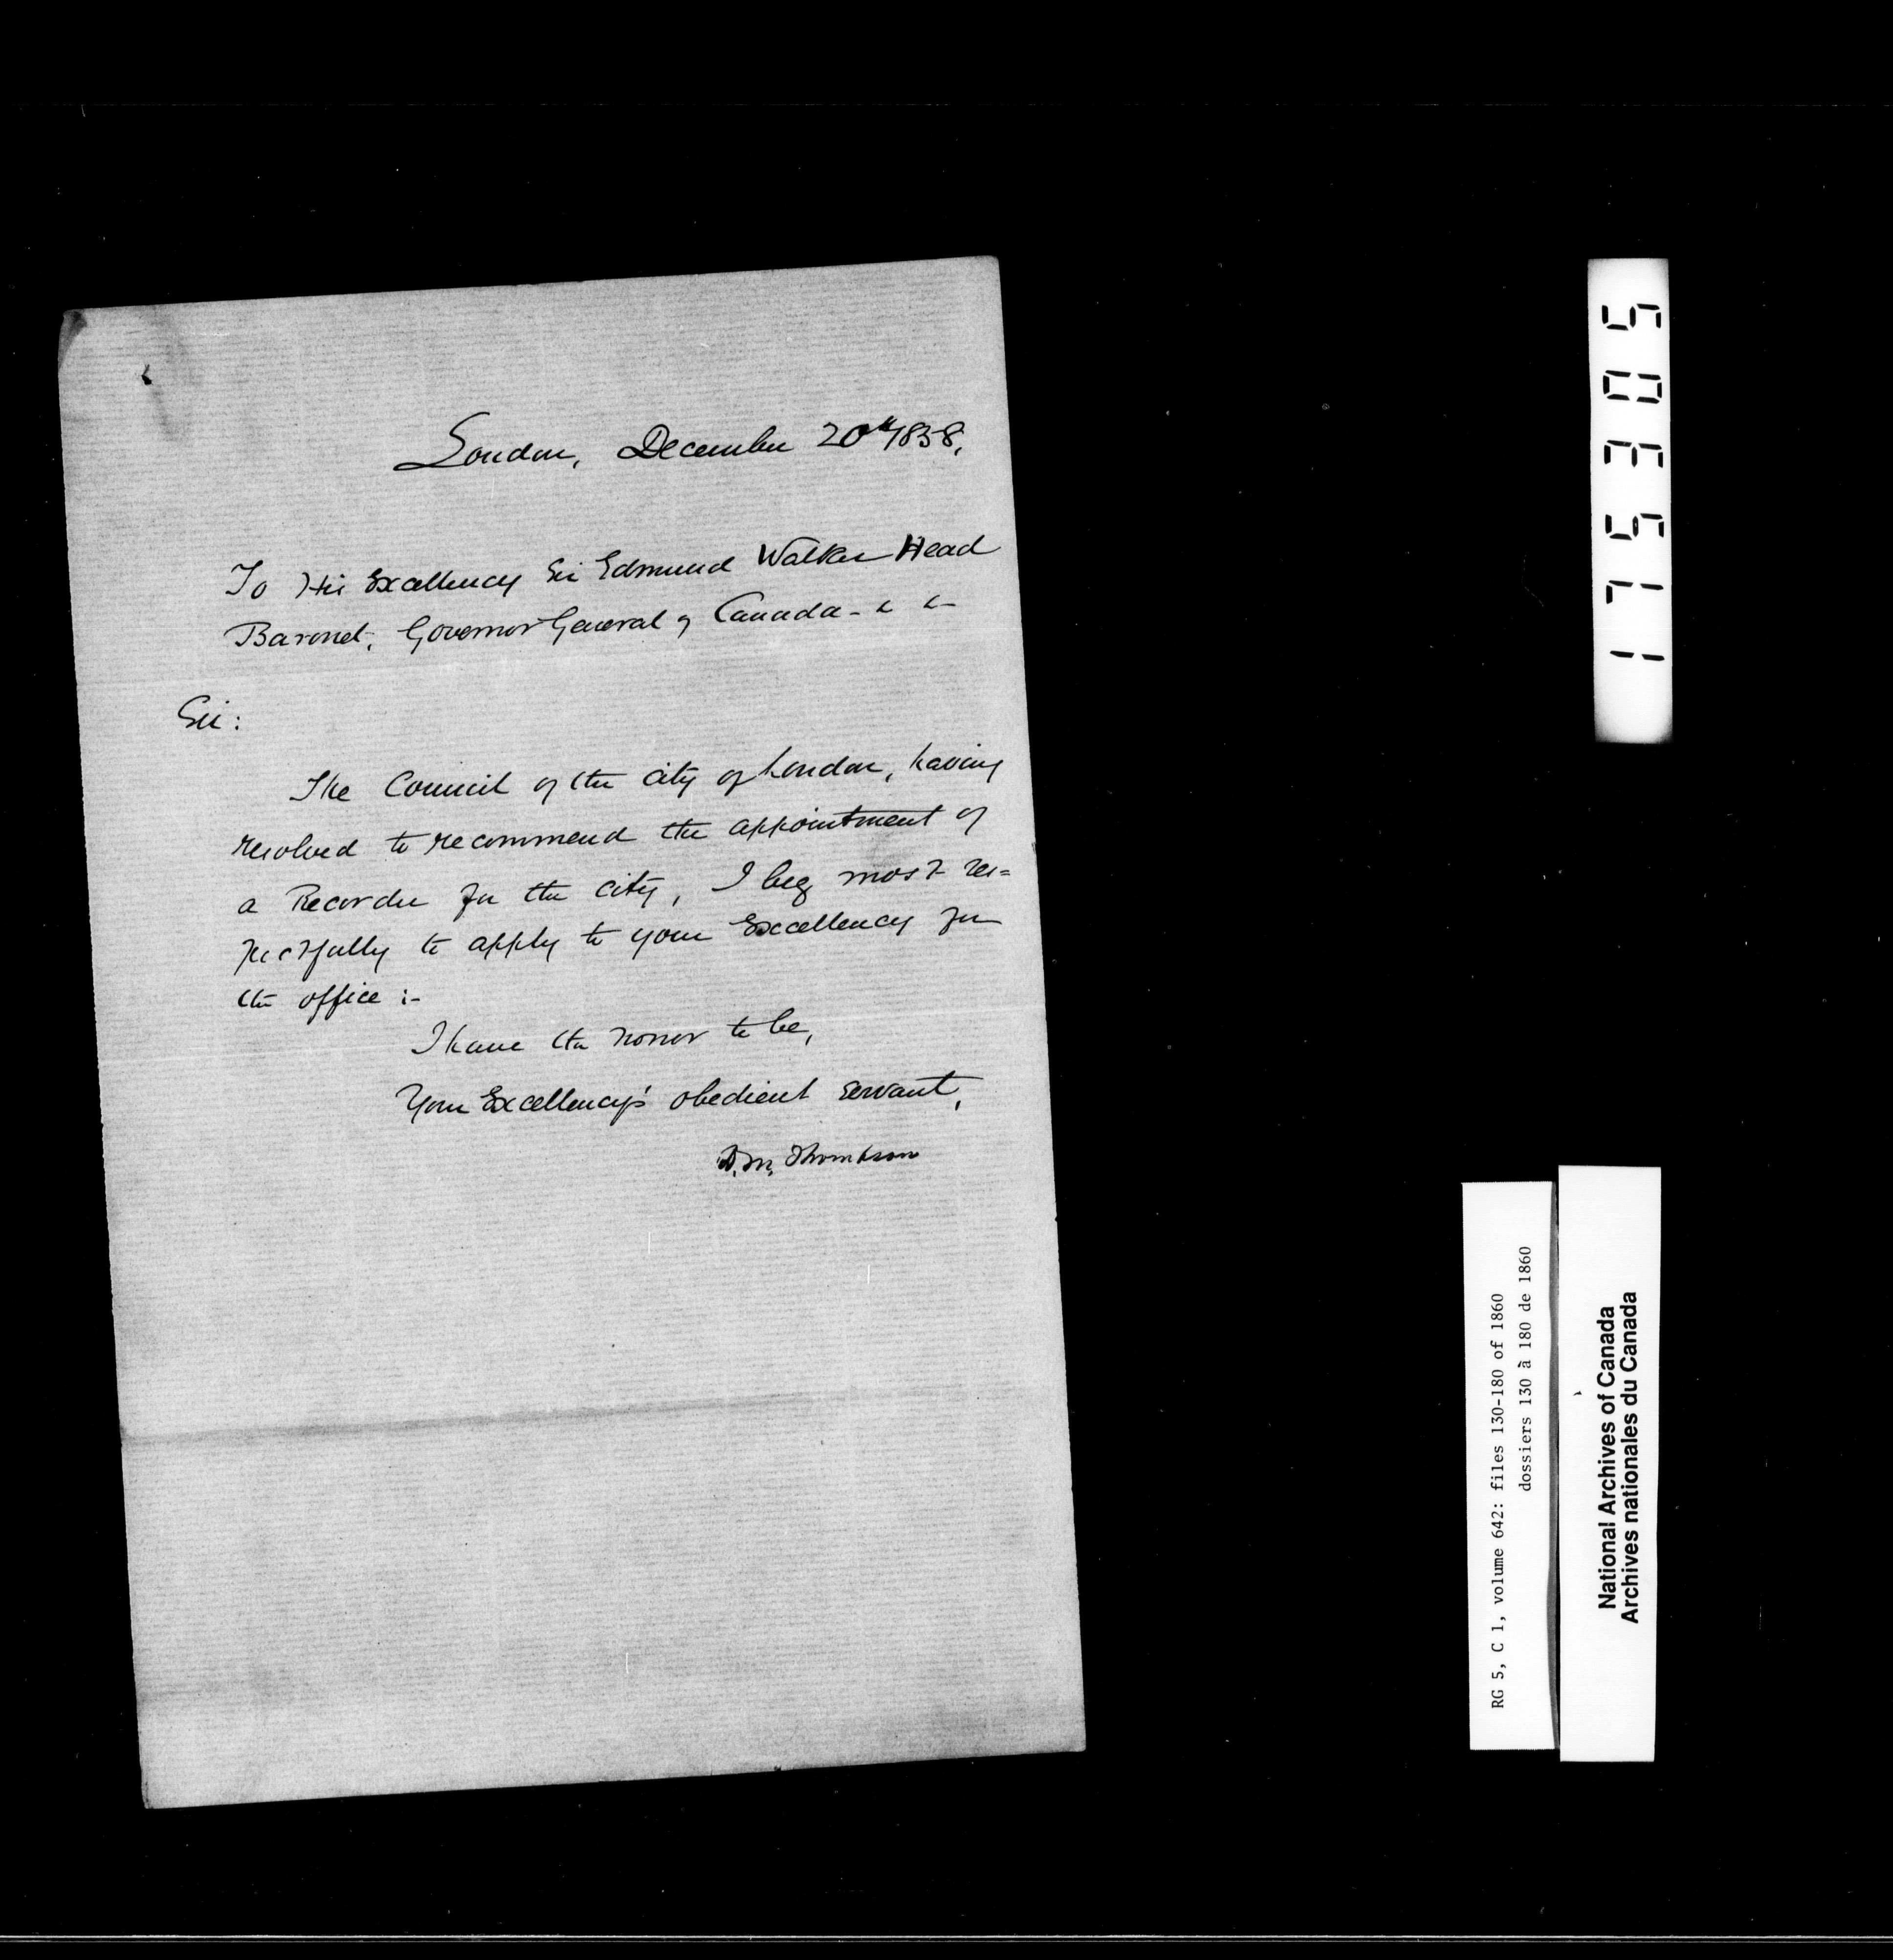 London, December 20th 1858,
To His Excellency Sir Edmund Walker Head
Baronet, Governor General of Canada - & &-
Sir:
The Council of the City of London, having
resolved to recommend the appointment of
a Recorder for the City, I beg most res=
pectfully to apply to your Excellency for
the office :-
I have the honor to be,
Your Excellency's obedient servant,
D. M. Thompson
175305
RG 5, C 1, volume 642: files 130-180 of 1860
dossiers 130 à 180 de 1860
National Archives of Canada
Archives nationales du Canada